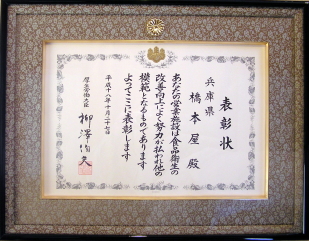 表彰状
兵庫県
橋本屋 殿
あなたの営業施設は食品衛生の
改善向上によく努力が払われ他の
模範となるものであります
よってここに表彰します
平成十八年十月二十七日
厚生労働大臣
柳澤伯夫